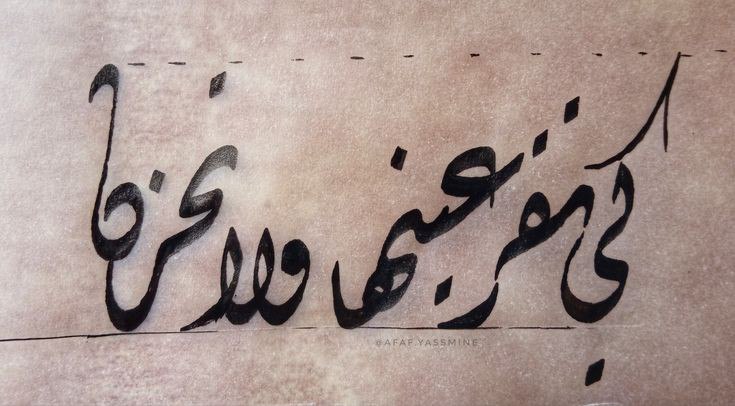 كي تقر عينها ولا تحزن
@AFAF.YASSMINE